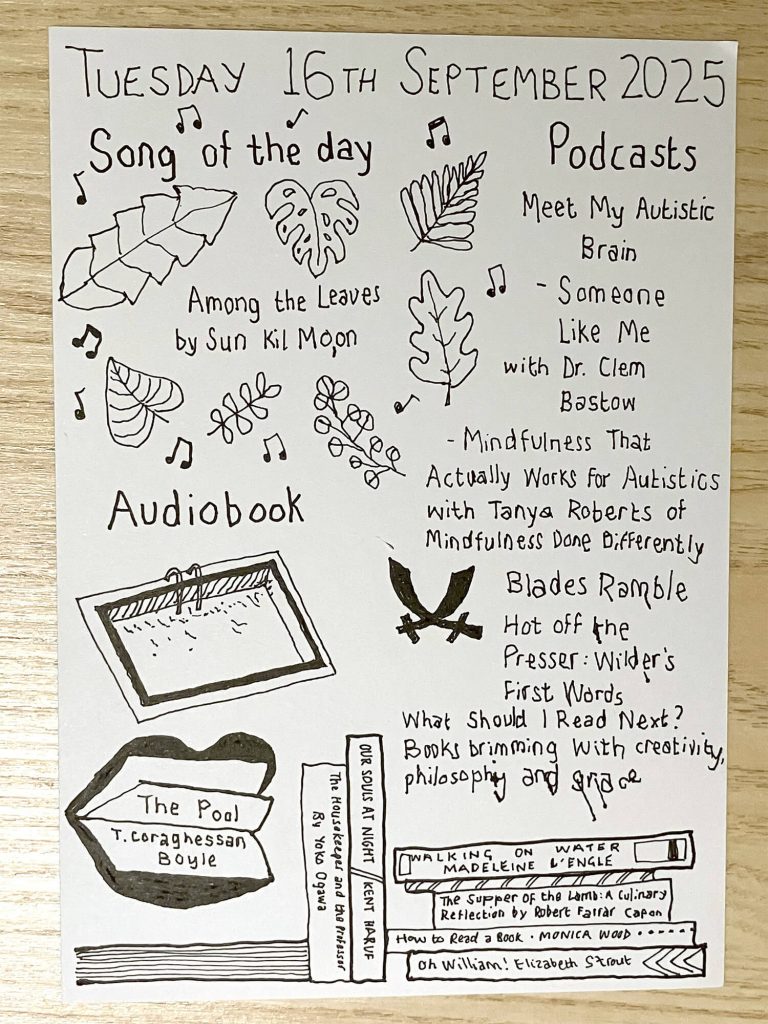 TUESDAY 16TH SEPTEMBER 2025
Song of the day
Among the Leaves
by Sun Kil Moon
Podcasts
Meet My Autistic
Brain
- Someone
Like Me
with Dr. Clem
Bastow
- Mindfulness That
Actually Works for Autistics
with Tanya Roberts of
Mindfulness Done Differently
Blades Ramble
Hot off the
Presser: Wilder's
First Words
What Should I Read Next?
Books brimming with creativity,
philosophy and grace
Audiobook
The Pool
T. Coraghessan
Boyle
The Housekeeper and the Professor
By Yoko Ogawa
OUR SOULS AT NIGHT // KENT HARUF
WALKING ON WATER
MADELEINE L'ENGLE
The Supper of the Lamb: A Culinary
Reflection by Robert Farrar Capon
How to Read a Book · MONICA WOOD ······
Oh William! Elizabeth Strout